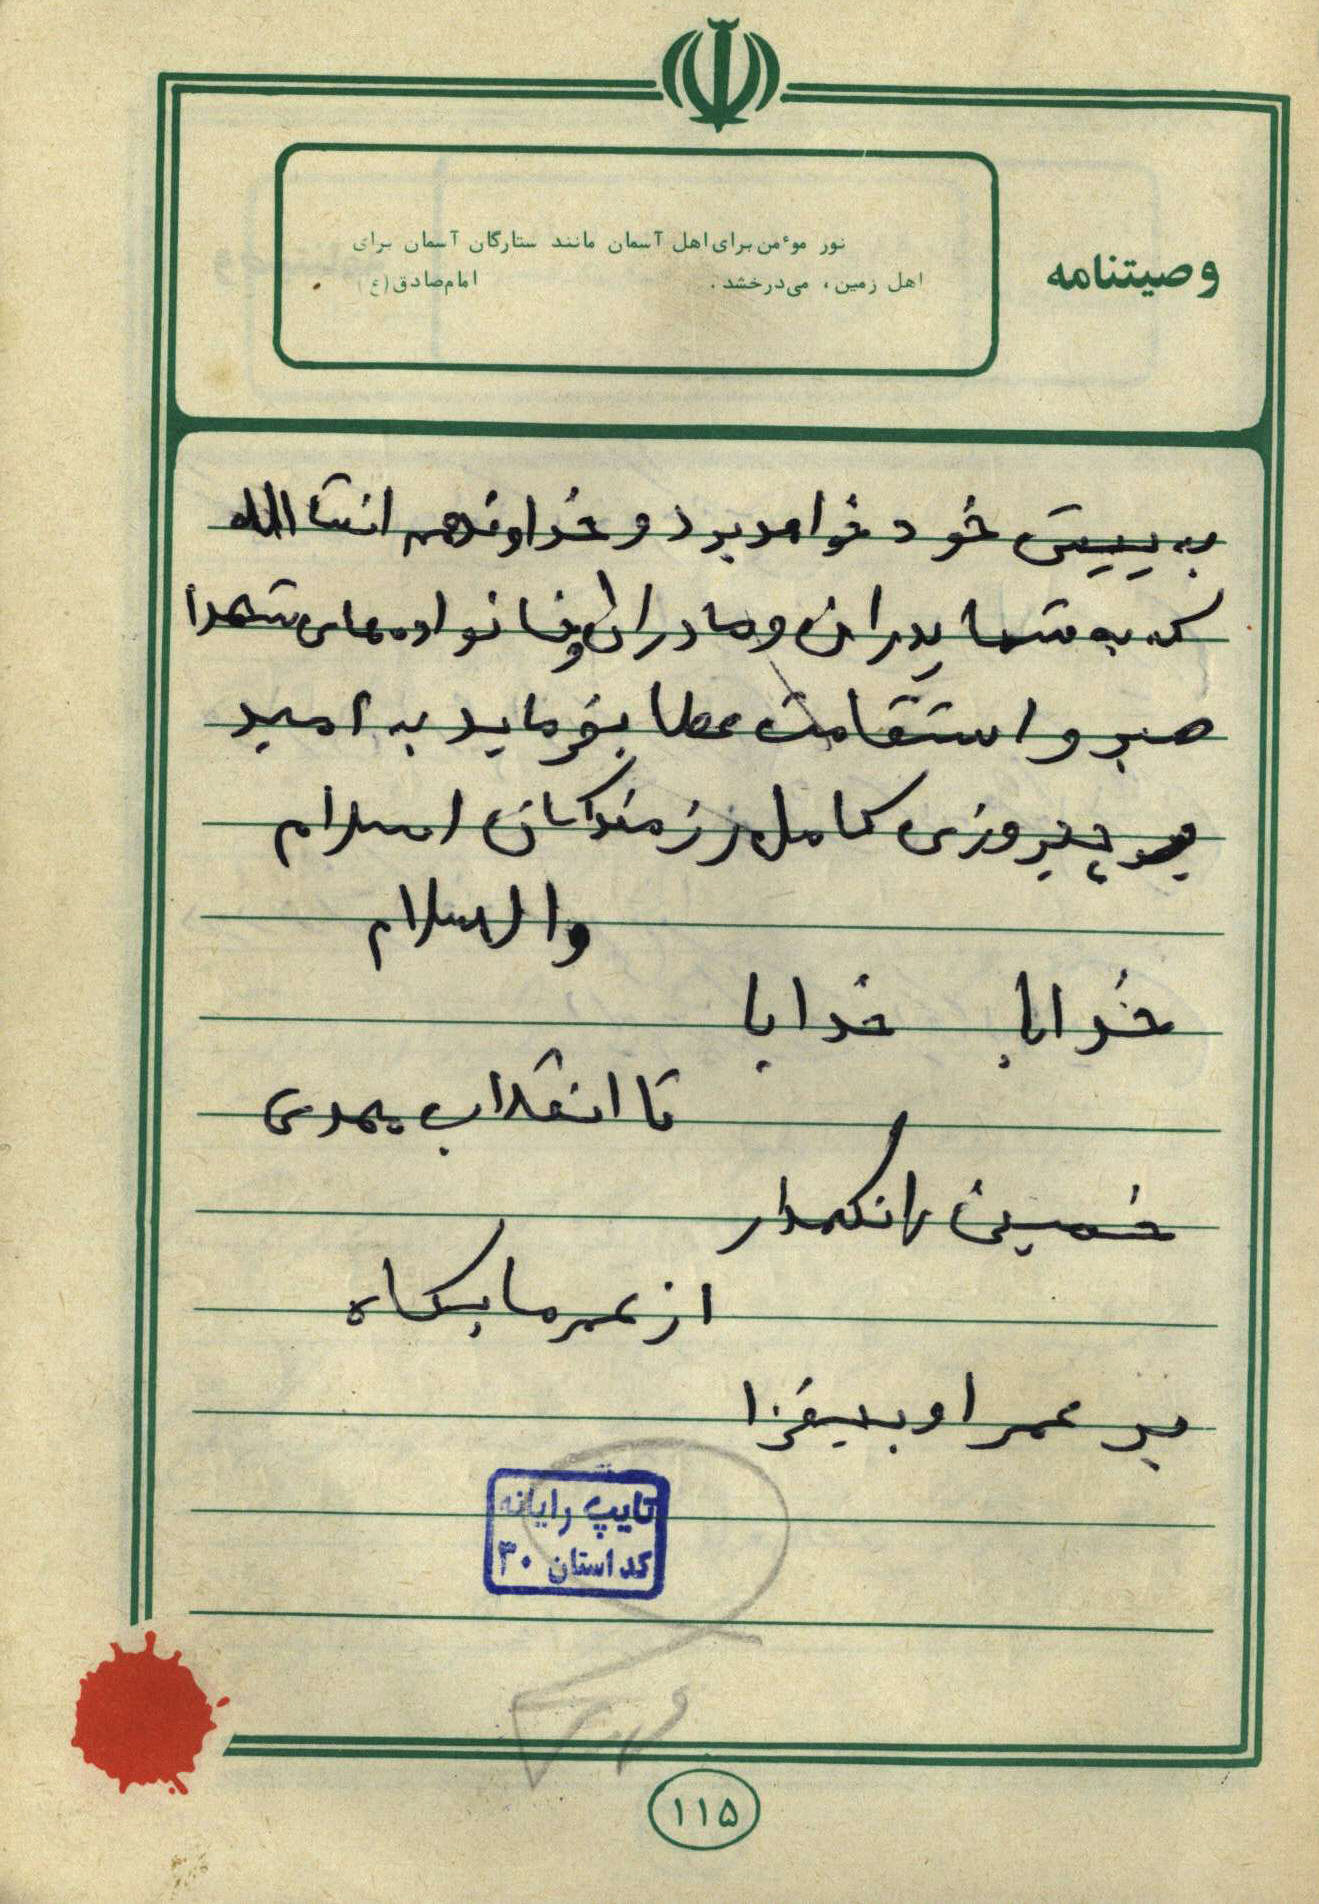 وصیتنامه
نور موٴمن برای اهل آسمان مانند ستارگان آسمان برای
اهل زمین، می‌درخشد. امام صادق (ع)
به پیش خود خواهد برد و خداوندهم انشاالله
که به شما پدران و مادران و خانواده‌های شهدا
صبر و استقامت عطا بفرماید به امید
پیروزی کامل رزمندگان اسلام
والسلام
خدایا خدایا
تا انقلاب مهدی
خمینی را نگهدار
از عمر ما بکاه
بر عمر او بیفزا
تایپ رایانه
کد استان ۳۰
۱۱۵